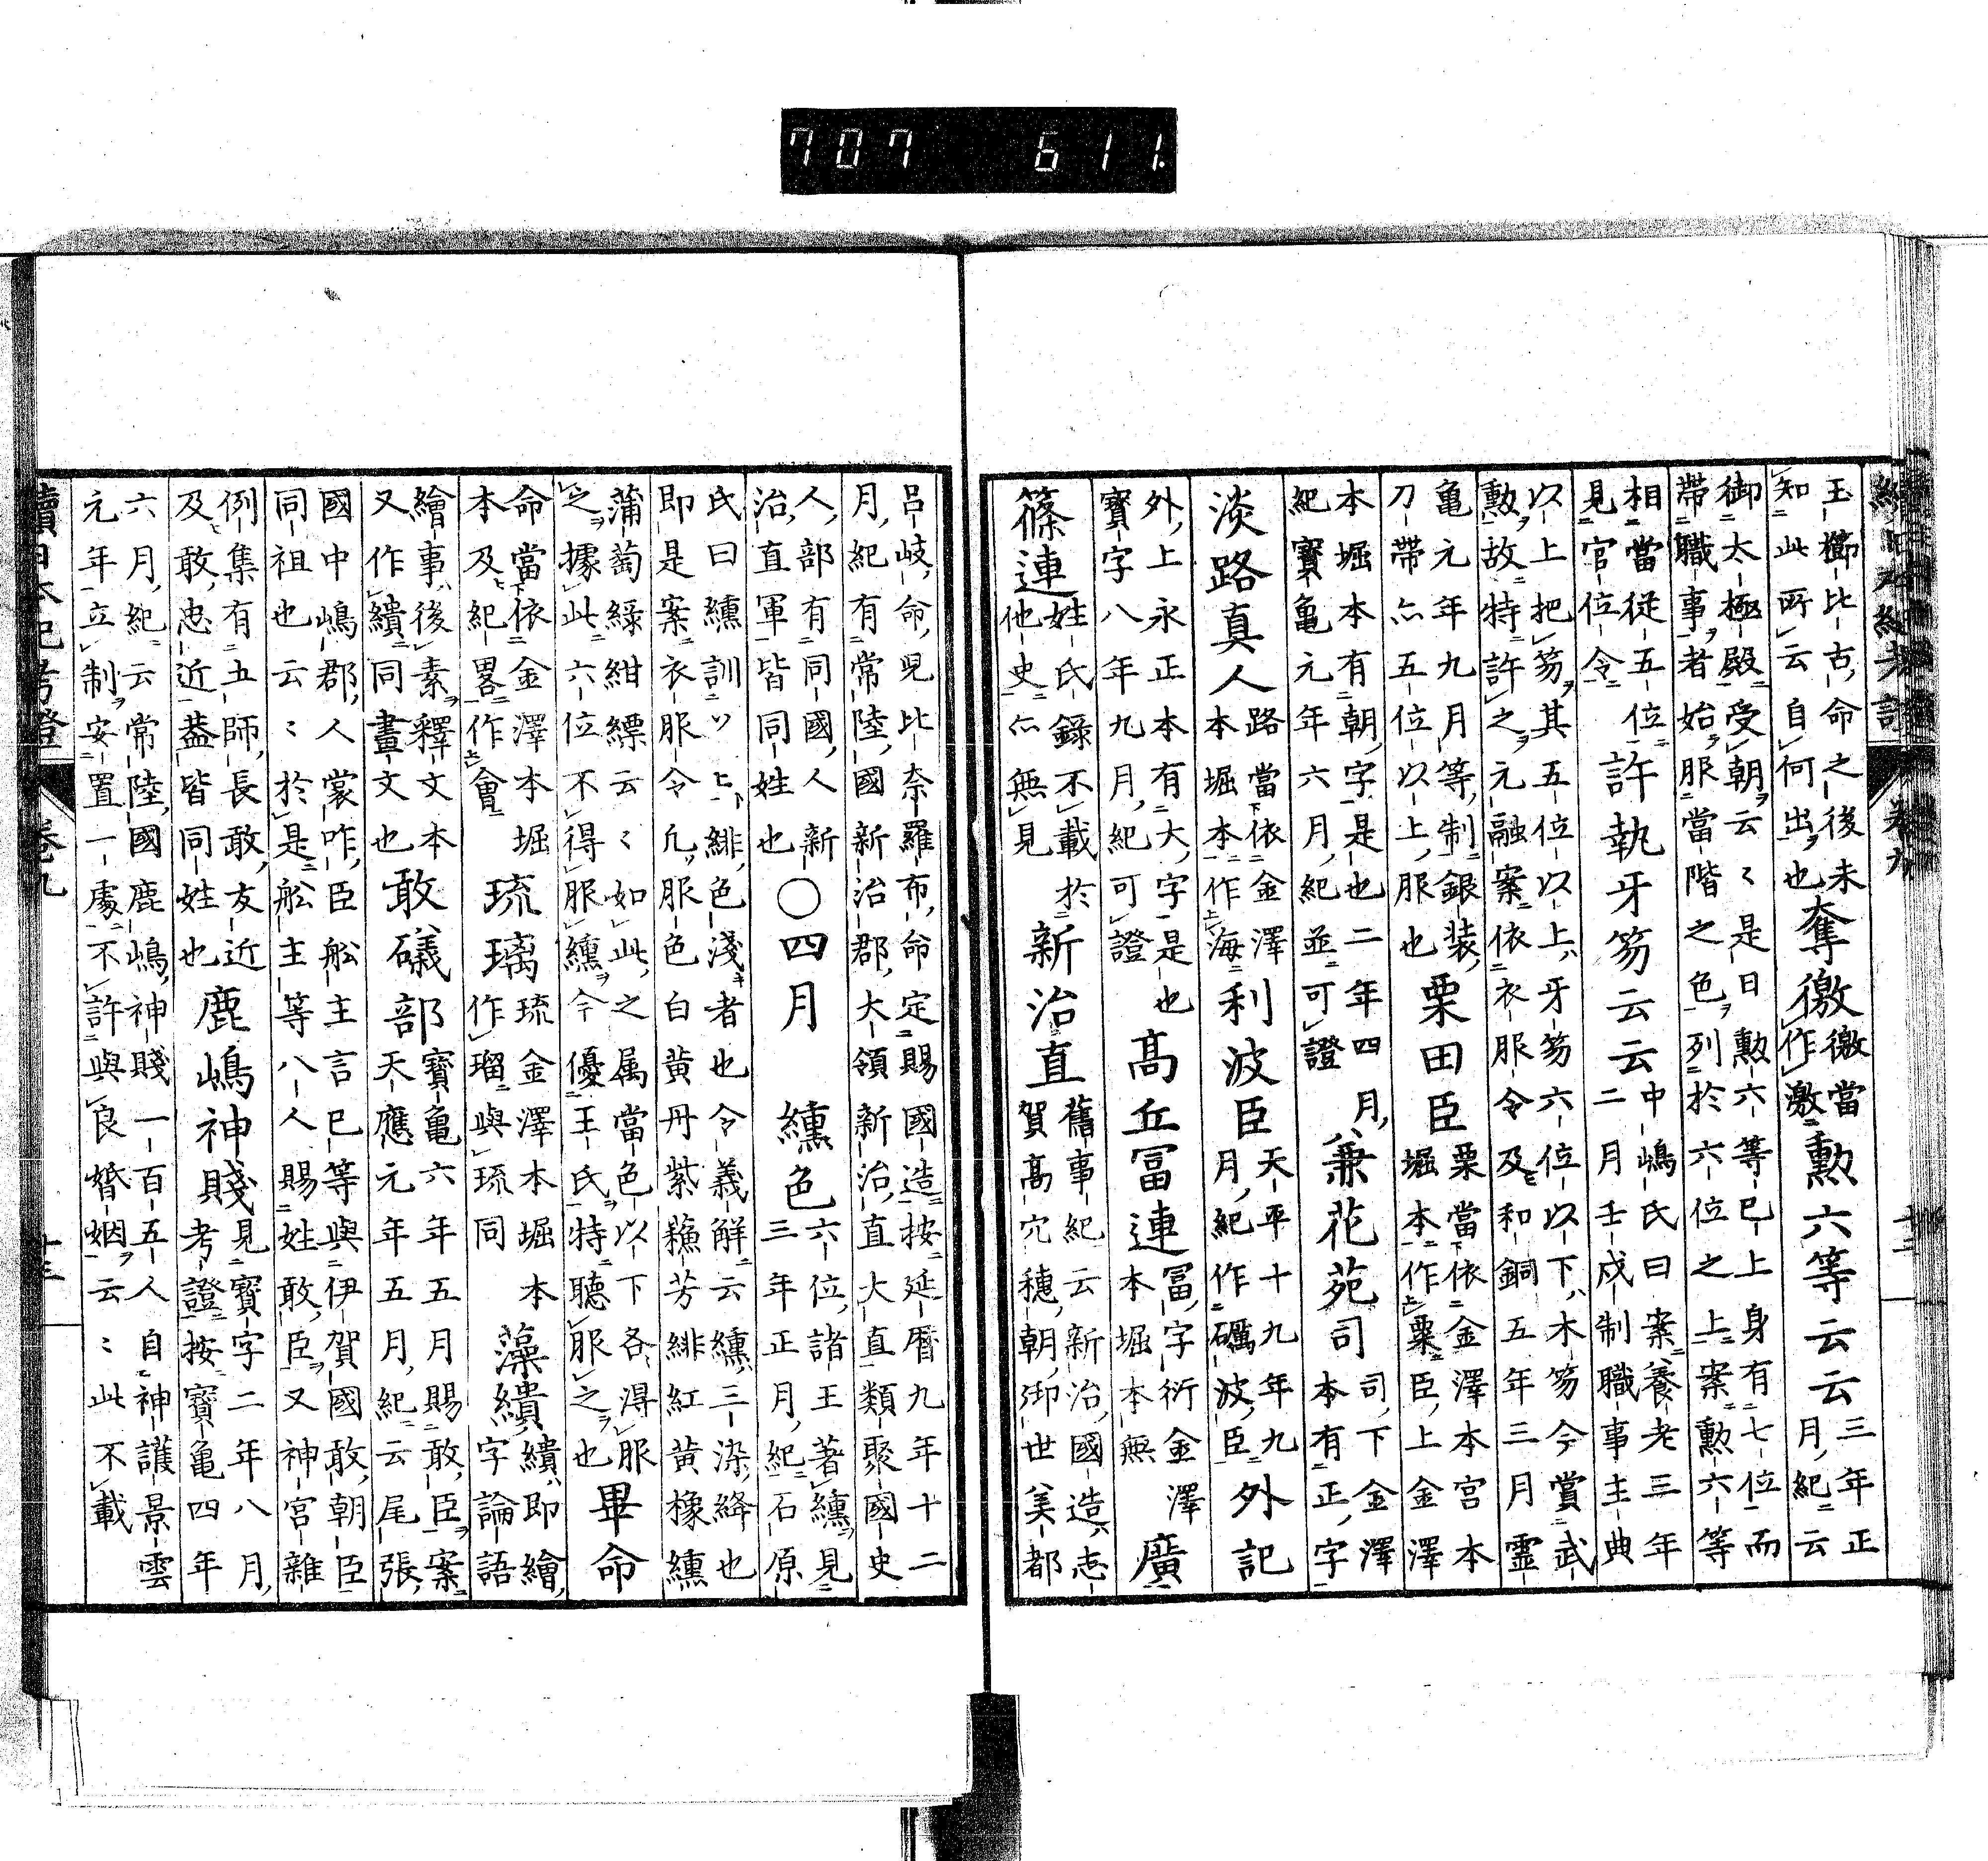 707 611.
玉櫛比古命之後未
知此所云自何出也奪徼徼當作激勲六等云云三年正月紀云
御太極殿受朝云〻是日勲六等已上身有七位而
帶職事者始服當階之色列於六位之上案勲六等
相當從五位許執牙笏云云中嶋氏曰案養老三年
見官位令二月壬戌制職事主典
以上把笏其五位以上牙笏六位以下木笏今賞武
勲故特許之元融案依衣服令及和銅五年三月靈
亀元年九月等制銀装栗田臣栗當依金澤本宮本
刀帶亦五位以上服也堀本作粟臣上金澤
本堀本有朝字是也二年四月兼花苑司司下金澤
紀寶亀元年六月紀並可證本有正字
淡路真人路當依金澤本堀本作海利波臣天平十九年九月紀作礪波臣外記
外上永正本有大字是也高丘冨連冨字衍金澤本堀本無廣
寶字八年九月紀可證
篠連姓氏錄不載於他史亦無見新治直舊事紀云新治國造志賀高穴穂朝御世美都
呂岐命兒比奈羅布命定賜國造按延曆九年十二
月紀有常陸國新治郡大領新治直大直類聚國史
人部有同國人新○四月纁色六位諸王著纁見
治直軍皆同姓也三年正月紀石原
氏曰纁訓ソヒ緋色淺キ者也令義解云纁三染絳也
即是案衣服令凡服色白黄丹紫蘓芳緋紅黄橡纁
蒲萄緑紺縹云〻如此之属當色以下各得服畢命
之據此六位不得服纁今優王氏特聽服之也
命當依金澤本堀琉璃琉金澤本堀本藻繢繢即繪
本及紀畧作會作瑠與琉同字論語
繪事後素釋文本敢礒部寶亀六年五月賜敢臣案
又作繢同畫文也天應元年五月紀云尾張
國中嶋郡人裳咋臣舩主言已等與伊賀國敢朝臣
同祖也云〻於是舩主等八人賜姓敢臣又神宮雜
例集有五師長敢友近鹿嶋神賤見寶字二年八月
及敢忠近蓋皆同姓也考證按寶亀四年
六月紀云常陸國鹿嶋神賤一百五人自神護景雲
元年立制安置一處不許與良婚姻云〻此不載
續日本紀考證
卷九
十三